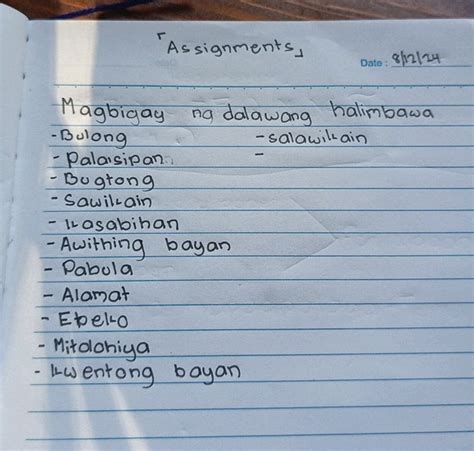 「Assignments」
Date: 8/12/24
Magbigay ng dalawang halimbawa
- Bulong - salawikain
- Palaisipan -
- Bugtong
- Sawikain
- Kasabihan
- Awithing bayan
- Pabula
- Alamat
- Epeko
- Mitolohiya
- Kwentong bayan